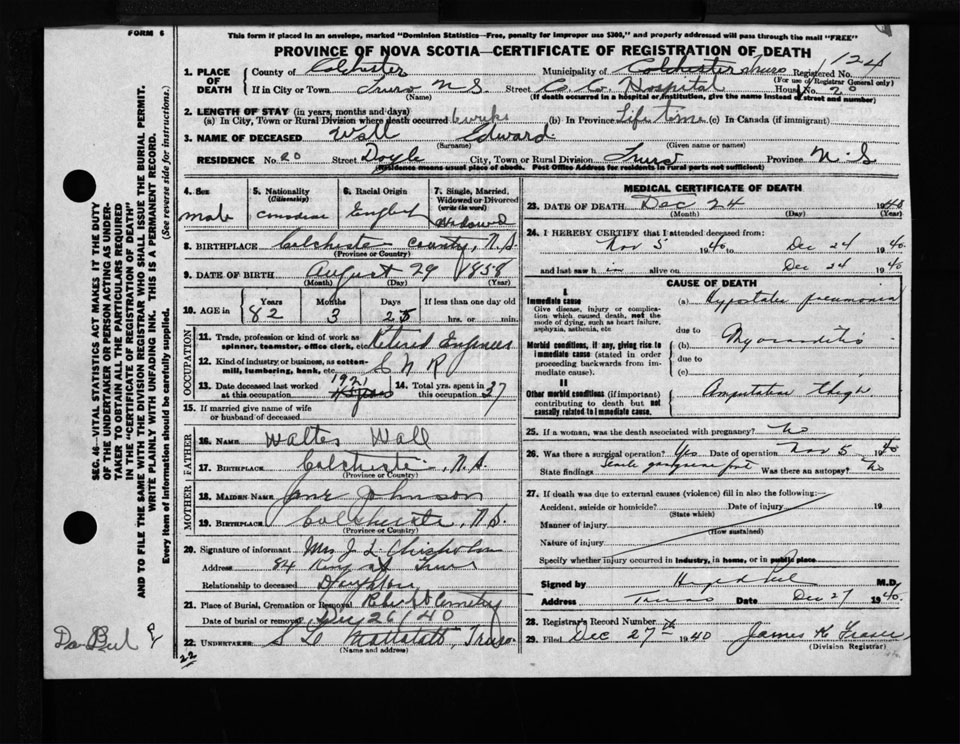 FORM 6
This form if placed in an envelope, marked "Dominion Statistics—Free, penalty for improper use $300," and properly addressed will pass through the mail "FREE"
PROVINCE OF NOVA SCOTIA—CERTIFICATE OF REGISTRATION OF DEATH
1. PLACE OF DEATH
County of Colchester Municipality of Colchester Truro Registered No. 124
(For use of Registrar General only)
If in City or Town Truro N S Street C. Co. Hospital House No. 20
(Name) (If death occurred in a hospital or institution, give the name instead of street and number)
2. LENGTH OF STAY (in years, months and days)
(a) In City, Town or Rural Division where death occurred 6 weeks (b) In Province Life time (c) In Canada (if immigrant)
3. NAME OF DECEASED Wall Edward
(Surname) (Given name or names)
RESIDENCE No. 20 Street Doyle City, Town or Rural Division Truro Province N. S
(Residence means usual place of abode. Post Office Address for residents in rural parts not sufficient)
4. Sex male
5. Nationality (Citizenship) Canadian
6. Racial Origin English
7. Single, Married, Widowed or Divorced (write the word) Widowed
8. BIRTHPLACE Colchester County, N.S.
(Province or Country)
9. DATE OF BIRTH August 29 1858
(Month) (Day) (Year)
10. AGE in Years 82 Months 3 Days 25 If less than one day old hrs. or min.
OCCUPATION
11. Trade, profession or kind of work as spinner, teamster, office clerk, etc. Retired Engineer
12. Kind of industry or business, as cotton-mill, lumbering, bank, etc. C N R
13. Date deceased last worked at this occupation 1921
14. Total yrs. spent in this occupation 37
15. If married give name of wife or husband of deceased
FATHER
16. NAME Walter Wall
17. BIRTHPLACE Colchester, N.S.
(Province or Country)
MOTHER
18. MAIDEN NAME Jane Johnson
19. BIRTHPLACE Colchester, N.S.
(Province or Country)
20. Signature of informant Mrs. J. L. Chisholm
Address 84 King St Truro
Relationship to deceased Daughter
21. Place of Burial, Cremation or Removal Robie St Cemetery
Date of burial or removal Dec 26/40
22. UNDERTAKER Truro
(Name and address)
22
MEDICAL CERTIFICATE OF DEATH
23. DATE OF DEATH Dec 24 1940
(Month) (Day) (Year)
24. I HEREBY CERTIFY that I attended deceased from:
Nov 5 1940 to Dec 24 1940
and last saw h im alive on Dec 24 1940
CAUSE OF DEATH
I.
Immediate cause
Give disease, injury or complication which caused death, not the mode of dying, such as heart failure, asphyxia, asthenia, etc
(a) Hypostatic pneumonia
due to
Morbid conditions, if any, giving rise to immediate cause (stated in order proceeding backwards from immediate cause).
(b) Myocarditis
due to
(c)
II
Other morbid conditions (if important) contributing to death but not causally related to immediate cause.
Amputation thigh
25. If a woman, was the death associated with pregnancy? No
26. Was there a surgical operation? Yes Date of operation Nov 5 1940
State findings Senile gangrene foot Was there an autopsy? No
27. If death was due to external causes (violence) fill in also the following:—
Accident, suicide or homicide? Date of injury 19
(State which)
Manner of injury
(How sustained)
Nature of injury
Specify whether injury occurred in industry, in home, or in public place
Signed by M.D.
Address Truro Date Dec 27 1940
28. Registrar's Record Number
29. Filed Dec 27th 1940 James K Fraser
(Division Registrar)
SEC. 46—VITAL STATISTICS ACT MAKES IT THE DUTY
OF THE UNDERTAKER OR PERSON ACTING AS UNDER-
TAKER TO OBTAIN ALL THE PARTICULARS REQUIRED
IN THE "CERTIFICATE OF REGISTRATION OF DEATH"
AND TO FILE THE SAME WITH THE DIVISION REGISTRAR WHO SHALL ISSUE THE BURIAL PERMIT.
WRITE PLAINLY WITH UNFADING INK. THIS IS A PERMANENT RECORD.
Every item of information should be carefully supplied. (See reverse side for instructions.)